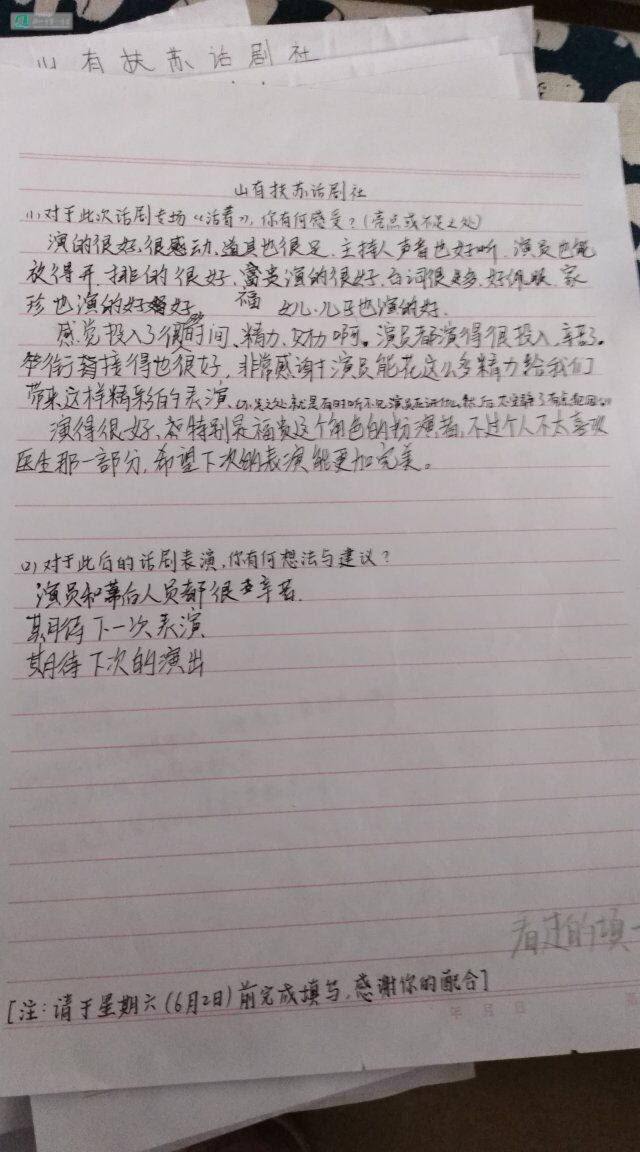 山有扶苏话剧社
山有扶苏话剧社
(1)对于此次话剧专场《活着》,你有何感受?(亮点或不足之处)
演的很好,很感动,道具也很足,主持人声音也好听,演员也能
放得开,排的很好,富贵演的很好,台词很多,好佩服,家
珍也演的好好, 福 女儿,儿子也演的好.
感觉投入了很多时间、精力、努力啊。演员都演得很投入,辛苦了。
衔接得也很好,非常感谢演员能花这么多精力给我们
带来这样精彩的表演.(不足之处就是有时听不见演员在讲什么
演得很好、特别是福贵这个角色的扮演者,不过个人不太喜欢
医生那一部分,希望下次的表演能更加完美。
(2)对于此后的话剧表演,你有何想法与建议?
演员和幕后人员都很辛苦.
期待下一次表演
期待下次的演出
看过的填一
[注:请于星期六(6月2日)前完成填写,感谢你的配合]
年 月 日 第